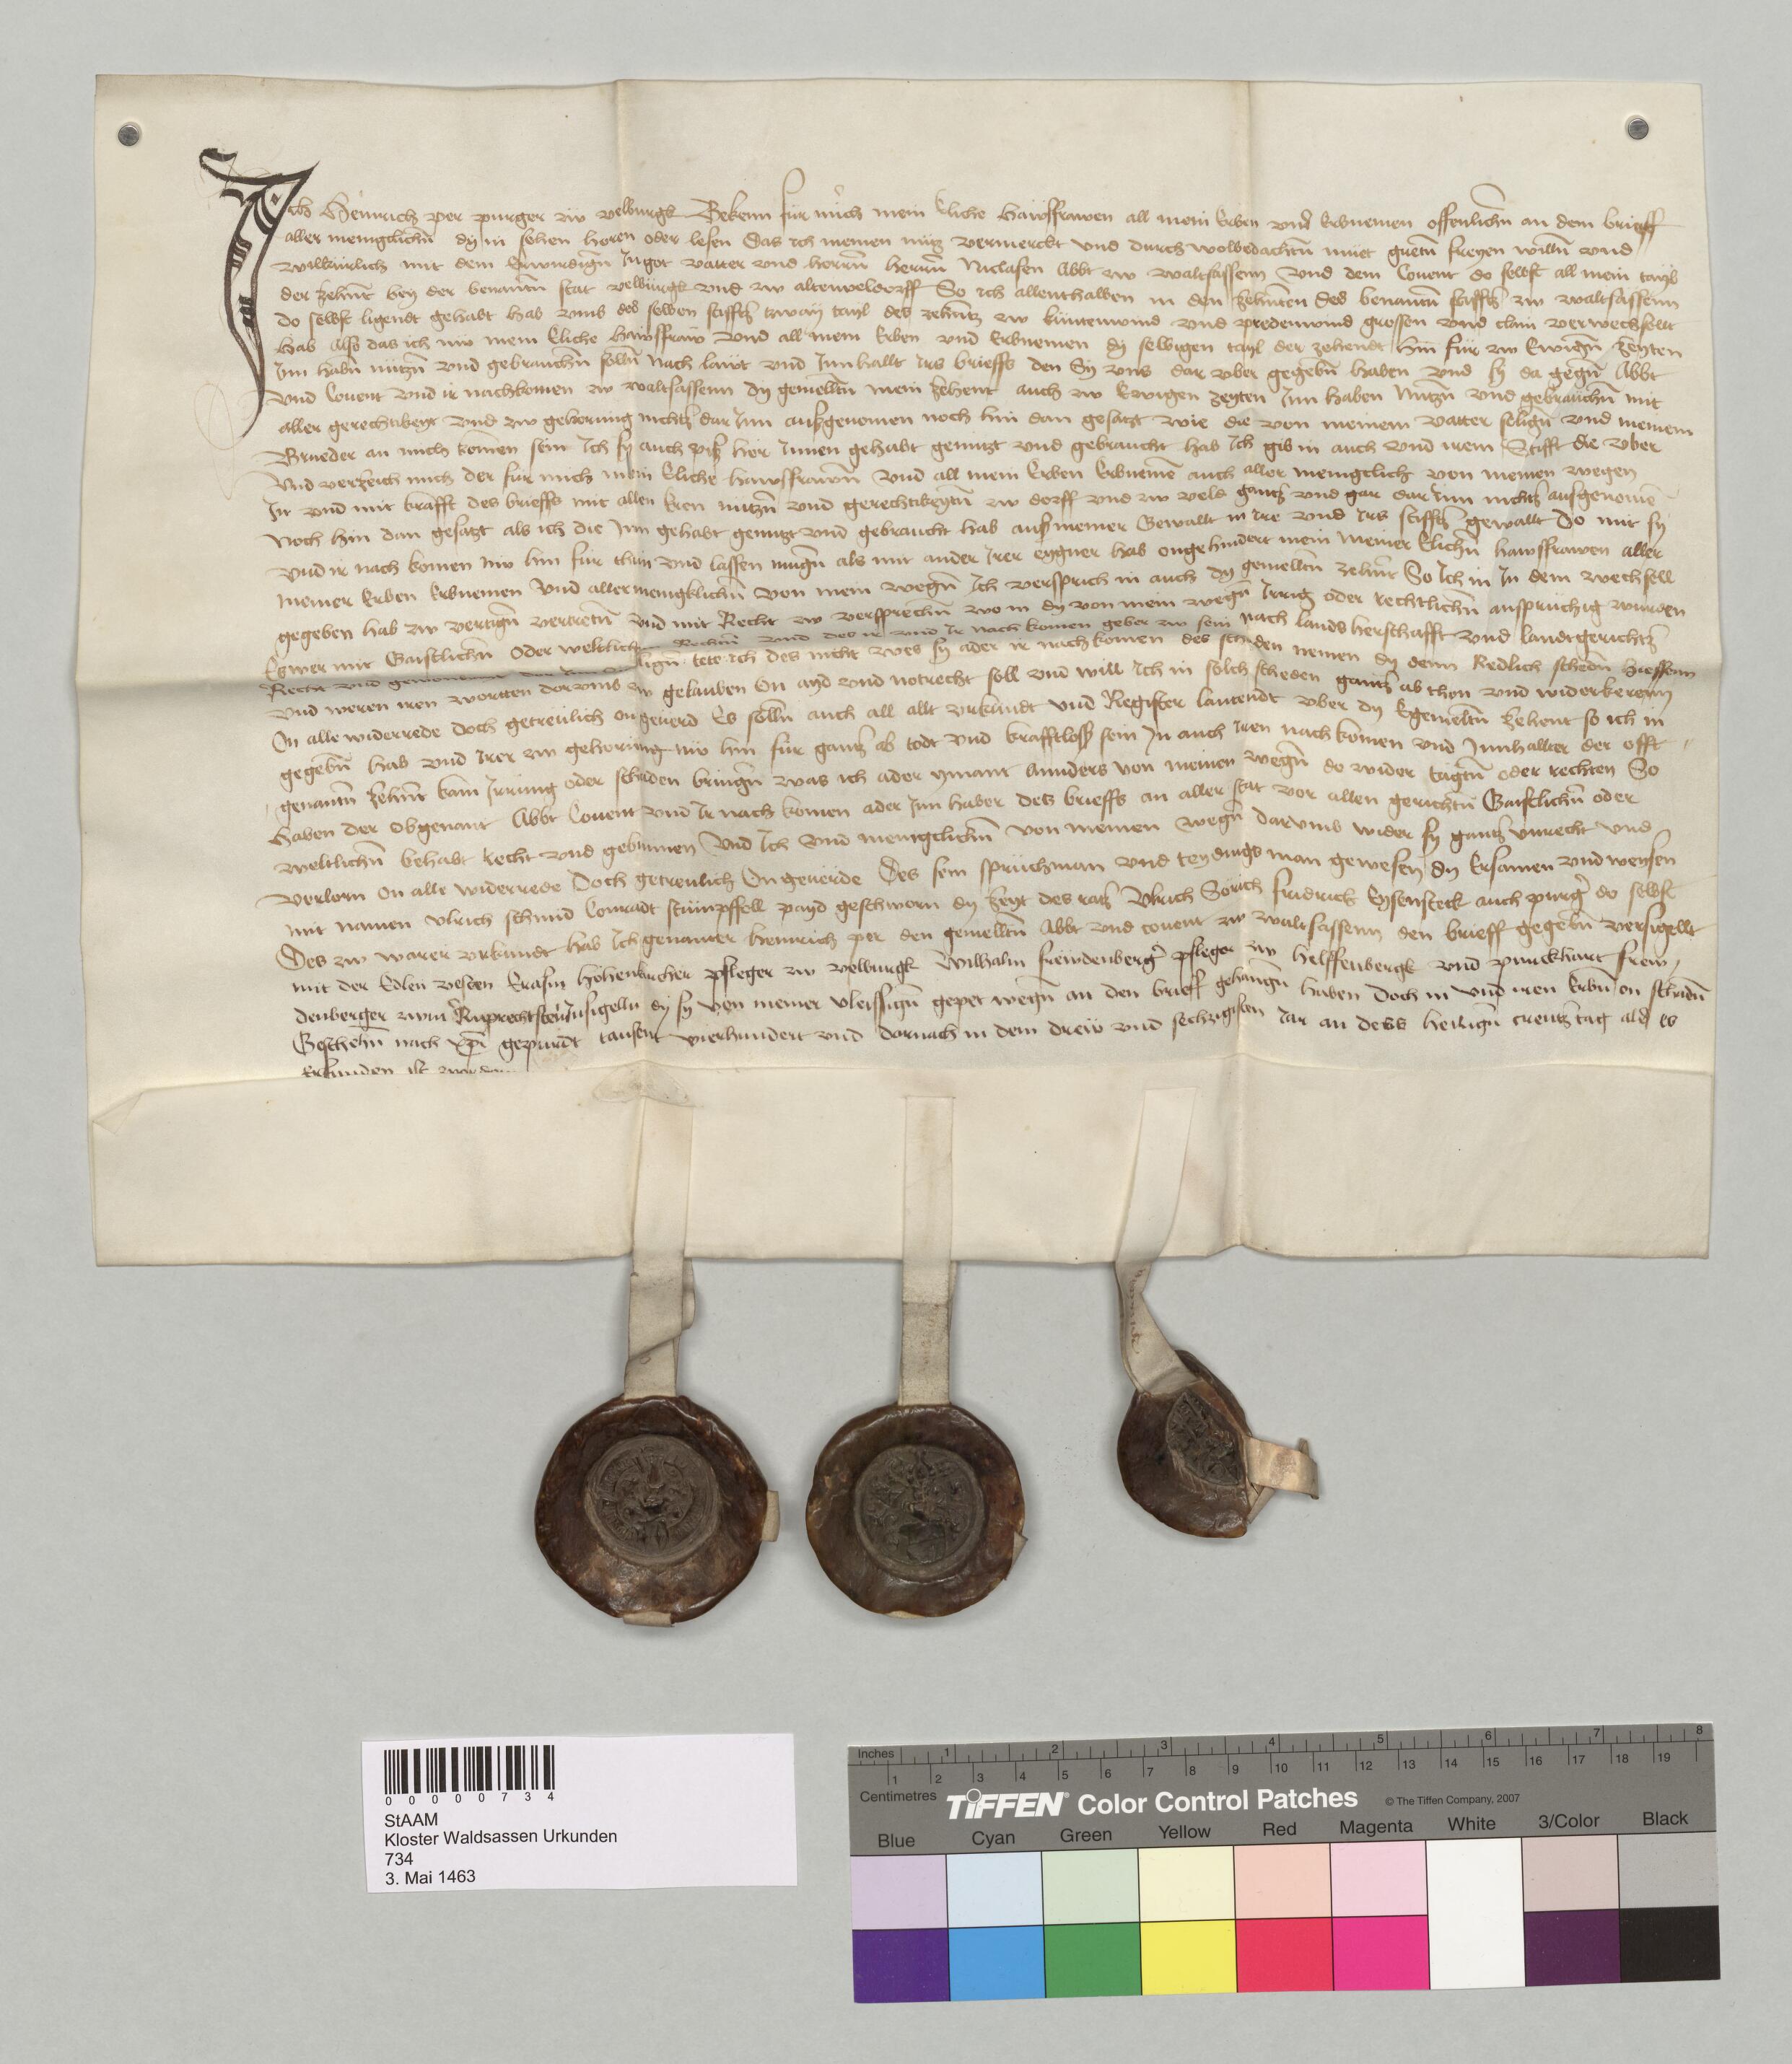 Ich Heinrich per purger zw velburgk Bekenn für mich mein Eliche hawsffrawen all mein Erbn vnd Erbnemen offenlichn an dem brieff
aller menigclichn dy in sehen horen oder lesen Das ich meinen nütz vermerckt vnd durch wolbedachtn müet gůtn freyen willn vnd
willkürlich mit dem Erwirdign Jngot vatter vnd herrn herrn Niclasen Abbt zw waltsassenn vnd dem Couent do selbst all mein tayl
der zehent bey der benantn stat velbürgk vnd zw alttenveldorff So ich allenthalben in den zehenten des benantn stiffts zw waltsassenn
do selbst ligendt gehabt hab vmb des selben stiffts zway tayl des zehentz zw küntenwind vnd predenwind grossen vnd clain verwechsellt
hab Also das ich nw mein Eliche hawsffraw vnd all mein Erben vnd Erbnemen dy selbigen tayl der zehendt hin für zw Ewign zeyten
Jnn habn nützn vnd gebrauchn solln Nach lawt vnd Jnnhallt Jrs brieffs den Sy vns dar vber gegebn haben vnd sy da gegn Abbt
vnd Couent vnd ir nachkomen zw waltsassenn dy gemelltn mein zehent auch zw Ewigen zeyten Jnn haben Nützn vnd gebrauchn mit
aller gerechtikeyt vnd zw gehorung nichts dar Jnn außgenomen noch hin dan gesatzt wie die von meinem vatter selign vnd meinem
Brueder an mich komen sein Ich sy auch piß her Jnnen gehabt genutzt vnd gebraucht hab Ich gib in auch vnd irem Stifft die vber
vnd verzeich mich der für mich mein Eliche hawsffrawn vnd all mein Erben Erbneme auch aller menigclich von meinen wegen
Jn vnd mit krafft des brieffs mit allen Eren nützn vnd gerechtikeytn zw dorff vnd zw veld gantz vnd gar dar Jnn nichtz ausgenome
Noch hin dan gesatzt als ich die Jnn gehabt genutzt vnd gebraucht hab auß meiner Gewallt in Ire vnd Irs stiffts gewallt Do mit sy
vnd ir nach komen nw hin für thün vnd lassen mügn als mit ander Irer eygner hab vngehindert mein meiner Elichn hawsffrawen aller
meiner Erben Erbnemen vnd allermenigklichn von mein wegn Ich versprich in auch dy gemelltn zehent So Ich in Jn dem wechsell
gegeben hab zw vertign vertretn vnd mit Recht zw versprechn wo in dy von mein wegn Jrrig oder rechtlichn ansprüchig würden
Es wer mit Gaistlichn oder weltlichn Rechtn vnd des ir vnd Ir nach komen geber zw sein nach lands herschafft vnd landtgerichtz
Recht vnd gewonheit tete ich des nicht wes sy ader ir nachkomen des schaden nemen dy denn Redlich schedn hiessenn
vnd weren iren wortten dorvmb zw gelauben On ayd vnd notrecht soll vnd will Ich in solch scheden gantz ab thon vnd widerkerenn
On alle widerrede doch getreülich ongeuerd Es solln auch all allt vrkundt vnd Register lautendt vber dy Egemeltn zehent so ich in
gegebn hab vnd Jrer zw gehorüng nw hin für gantz ab todt vnd krafftloß sein Jn auch Iren nach komen vnd Jnnhallter der offt
genantn zehent kain Jrrüng oder schaden bringn was ich ader ymant annders von meinen wegn do wider tagtn oder rechten So
Haben der obgenant Abbt Couent vnd Ir nach komen ader Jnn haber des brieffs an aller stat vor allen gerichtn Gaistlichn oder
weltlichn behabt Recht vnd gebunnen vnd Ich vnd menigclichn von meinen wegn darvmb wider sy gantz vnrecht vnd
verlorn on alle widerrede Doch getreulich Ongeuerde Des sein sprüchman vnd teydingsman gewesen dy Ersamen vnd weysen
mit namen vlrich schmid Conradt stümpffell payd geschworn dy zeyt des ratz Vlrich Sörich fridrick Eysensteck auch purger do selbst
Des zw warer vrkundt hab Ich genanter heinrich per den gemelltn Abbt vnd couent zw waltsassenn den brieff gegebn versigellt
mit der Edlen vesten Erasm hohenkircher pfleger zw velburgk Wilhalm frewdenberger pfleger zw helffenbergk vnd purckhart frew
denberger zum Ruprechtstein Jnsigelln dy sy von meiner vleissign gepet wegn an den brieff gehangn haben Doch in vnd iren Erbn on schadn
Geschehn nach xpi gepurdt tausent vierhundert vnd dornach in dem drew vnd sechzigisten Jar an dess heilign creutz tag als es
Erfunden ist worden
0 0 0 0 0 7 3 4
StAAM
Kloster Waldsassen Urkunden
734
3. Mai 1463
Inches 1 2 3 4 5 6 7 8
Centimetres 1 2 3 4 5 6 7 8 9 10 11 12 13 14 15 16 17 18 19
TIFFEN Color Control Patches © The Tiffen Company, 2007
Blue Cyan Green Yellow Red Magenta White 3/Color Black